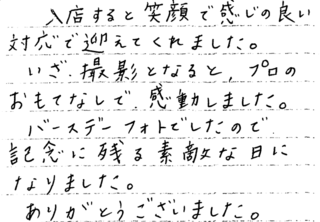 入店すると笑顔で感じの良い
対応で迎えてくれました。
いざ撮影となると、プロの
おもてなしで、感動しました。
バースデーフォトでしたので
記念に残る素敵な日に
なりました。
ありがとうございました。